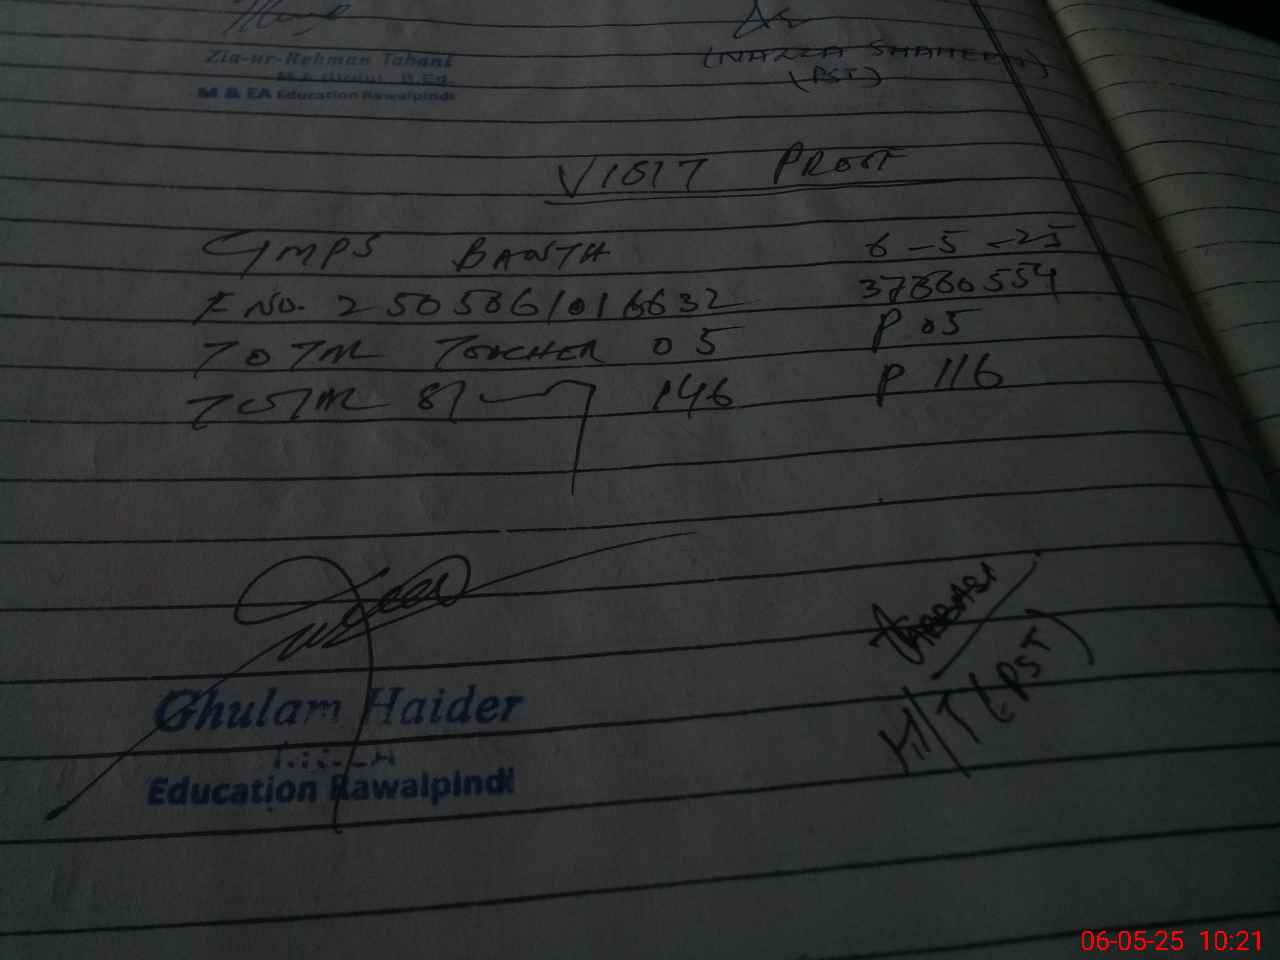 Zia-ur-Rehman Tabani
B.Ed.
M & EA Education Rawalpindi
(NAZIA SHAHEEN)
(PST)
VISIT PROOF
GMPS 6-5-25
F NO. 2505061016632 37330554
TOTAL TEACHER 05 P 05
TOTAL ST 146 P 116
ABBASI
H/T (PST)
Ghulam Haider
Education Rawalpindi
06-05-25 10:21